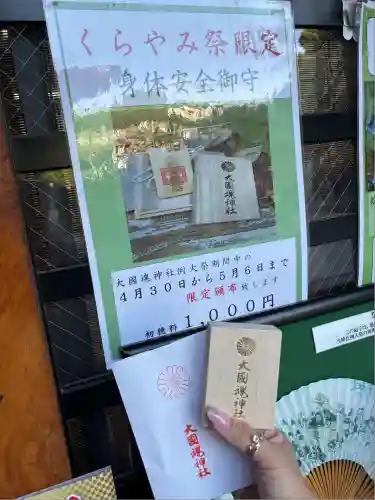 くらやみ祭限定
身体安全御守
大國魂神社
大國魂神社例大祭期間中の
4月30日から5月6日まで
限定頒布致します
初穂料 1,000円
大國魂神社
大國魂神社